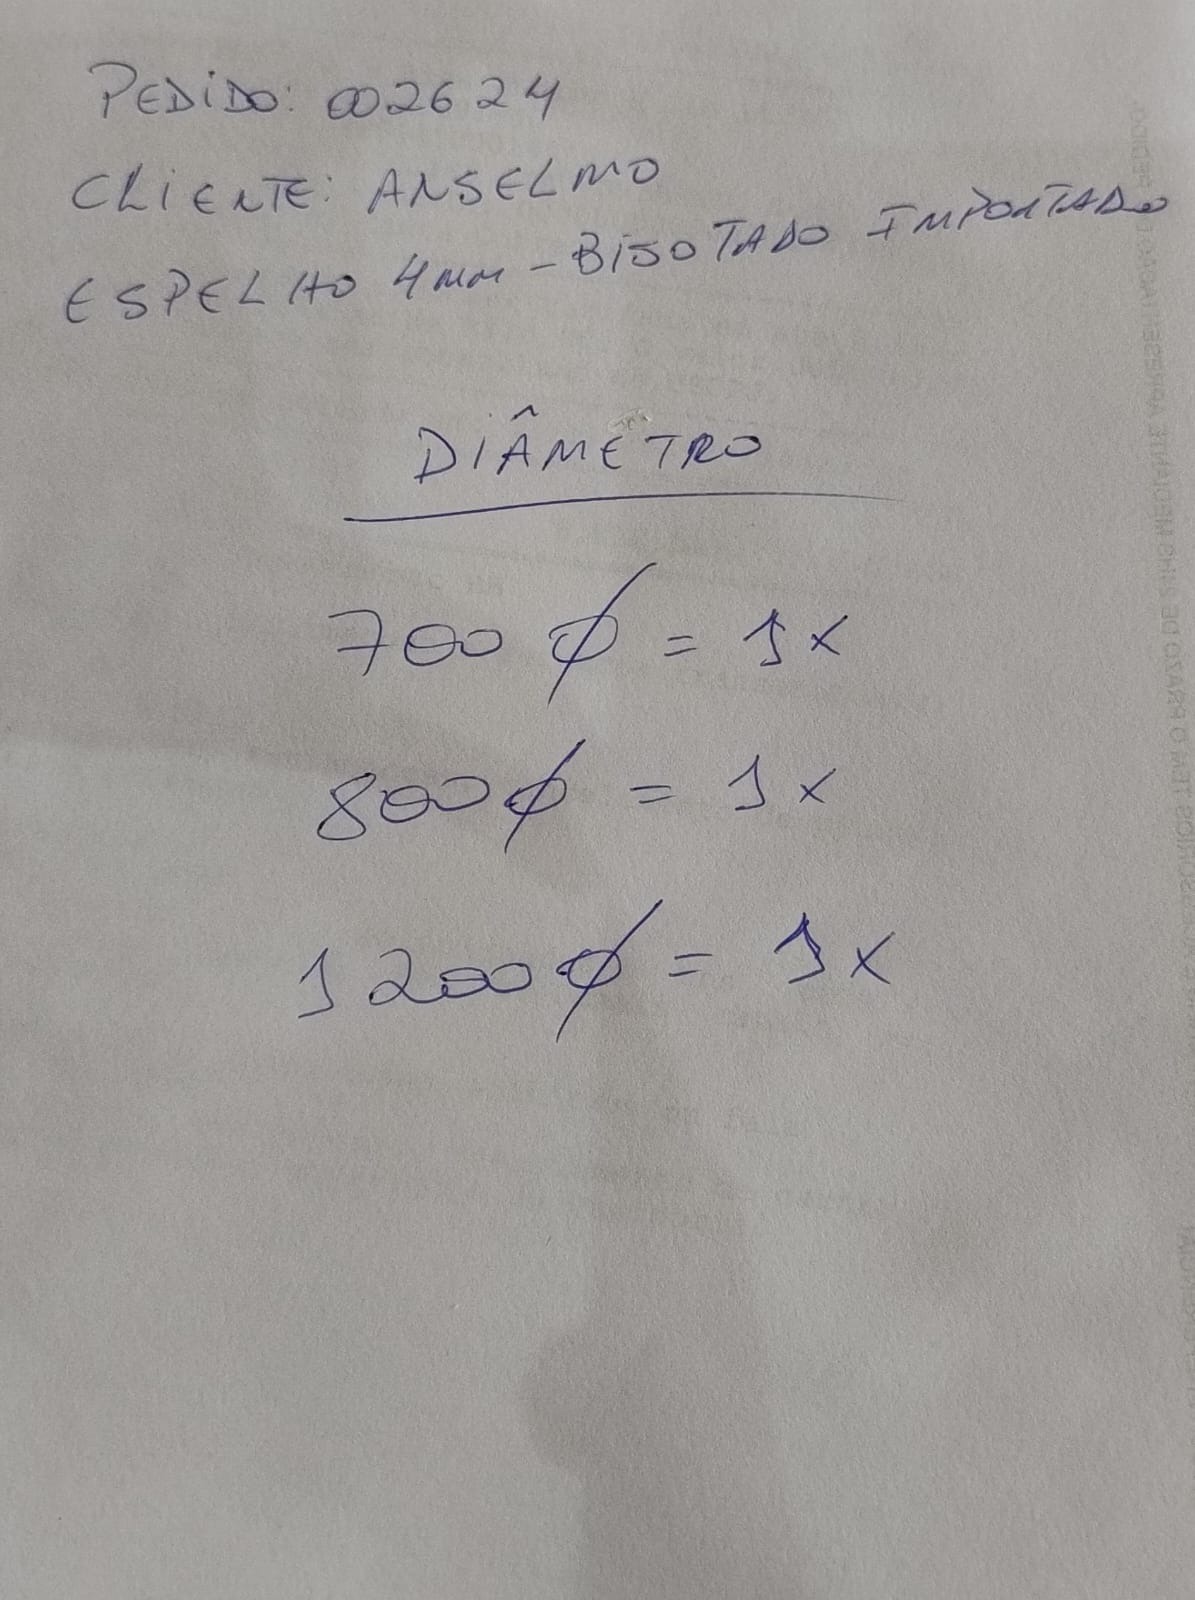 PEDIDO: 002624
CLIENTE: ANSELMO
ESPELHO 4mm - BISOTADO IMPORTADO
DIÂMETRO
700 ø = 1x
800 ø = 1x
1200 ø = 1x